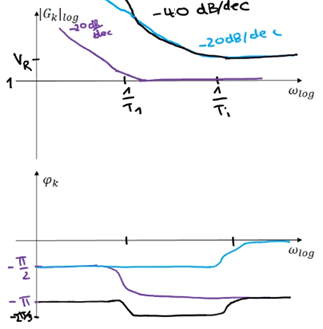 |G_k|log
-20dB/dec
-40 dB/dec
-20dB/dec
V_R
1
1/T_1
1/T_i
ω_log
φ_k
ω_log
-π/2
-π